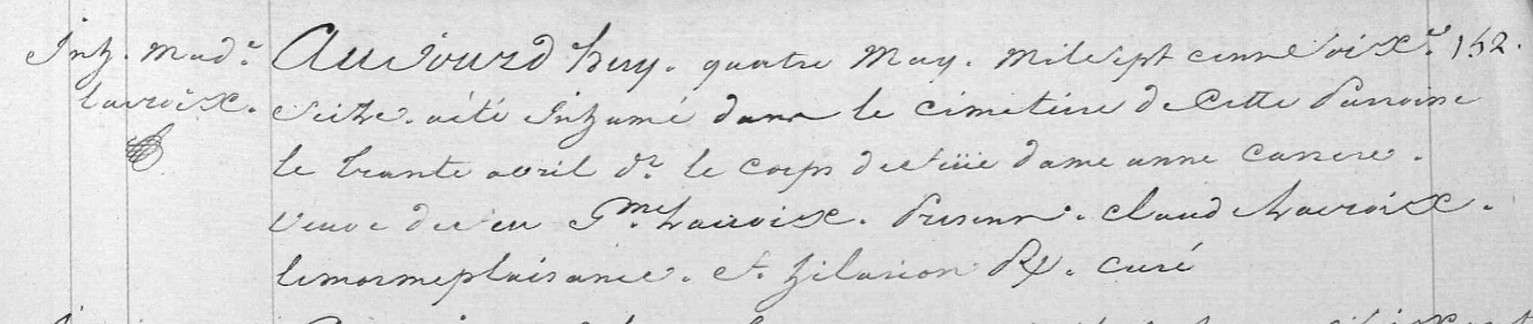 Inh. Mad.e
lacroix.
Aujourd huy. quatre May. mil sept cenne soix.te 152.
seize. aété Inhumé dans le cimetiere de Cette Parroisse
le trante avril d.r le corps de dame anne carrere.
veuve de feu G.me Lacroix. Presens. claud Lacroix.
plaisance. et. hilarion curé